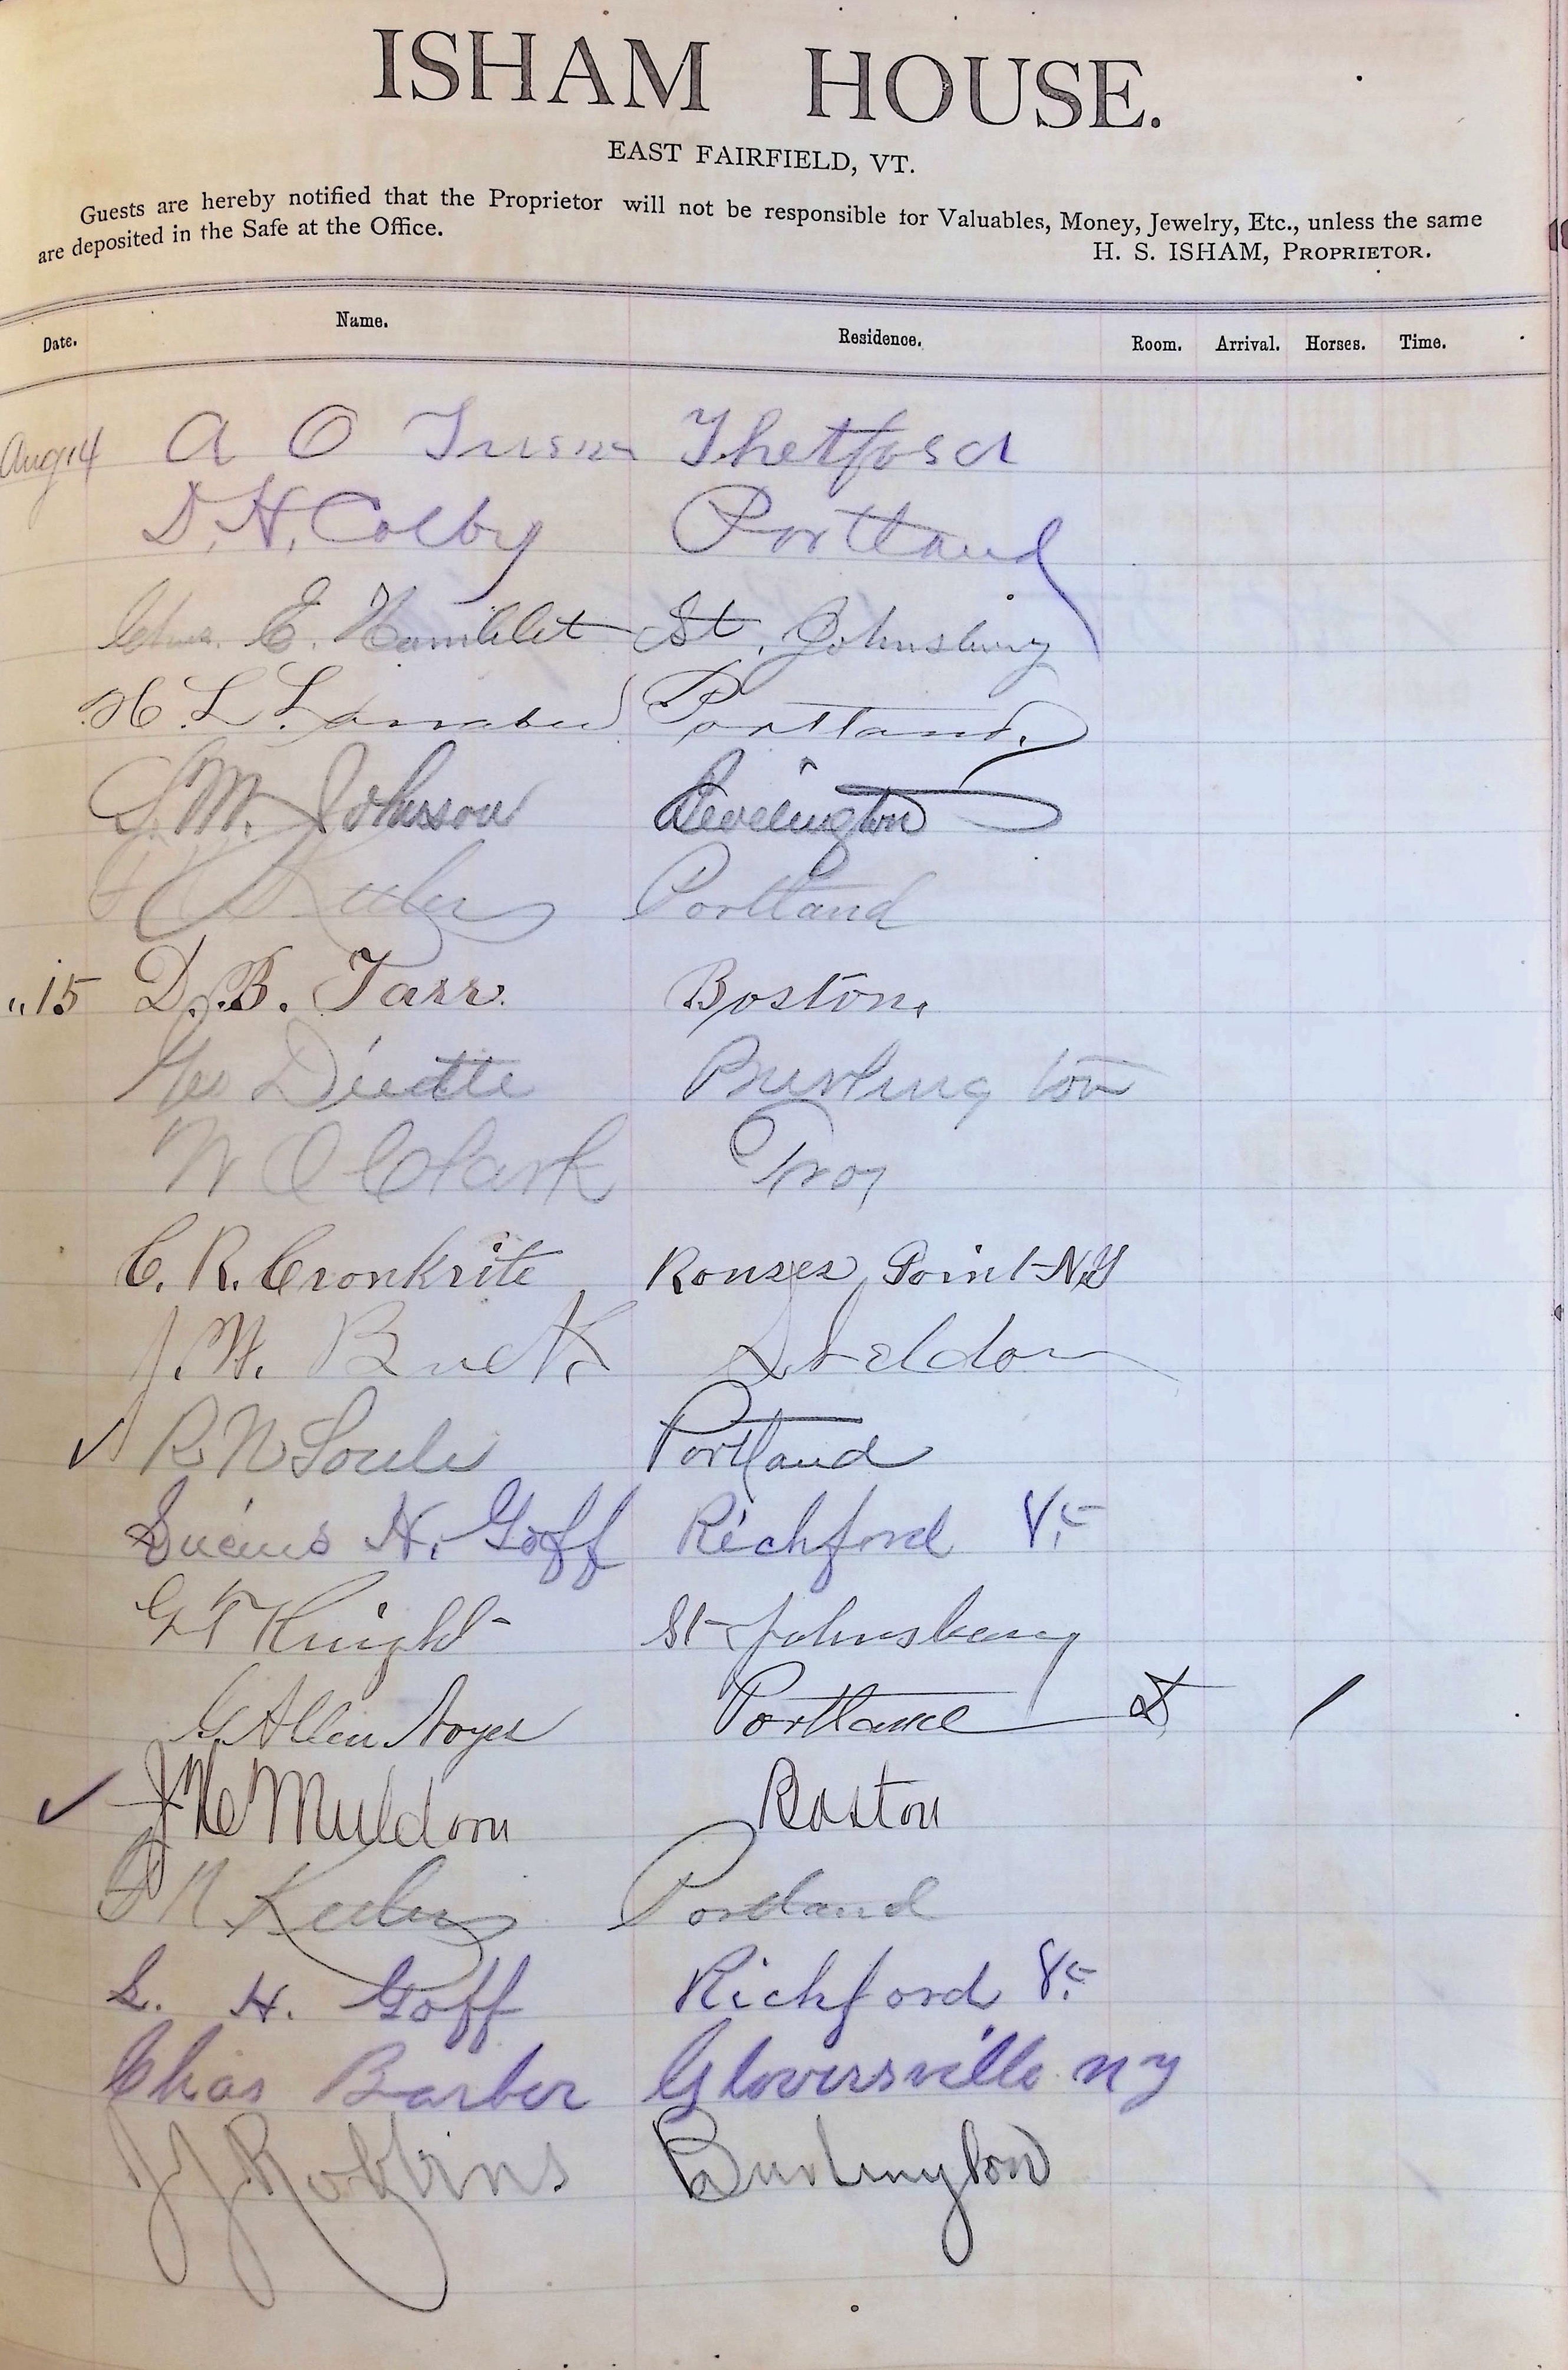 ISHAM HOUSE.
EAST FAIRFIELD, VT.
Guests are hereby notified that the Proprietor will not be responsible for Valuables, Money, Jewelry, Etc., unless the same
are deposited in the Safe at the Office.
H. S. ISHAM, PROPRIETOR.
Date. Name. Residence. Room. Arrival. Horses. Time.
Aug 14 A O Thetford
D. H. Colby Portland
E. Hamblet St. Johnsbury
H. L. Portland.
S. M. Johnson Burlington
Portland
" 15 D. B. Tarr. Boston.
Geo Burlington
W O Clark Troy
C. R. Cronkrite Rouses Point N.Y
J. W. Buck Sheldon
✓ R N Soule Portland
Lucius H. Goff Richford Vt
G T Knight St Johnsbury
G. Allen Noyes Portland /
✓ Muldoon Boston
Keeler Portland
L. H. Goff Richford Vt
Chas Barber Gloversville N Y
J J Robbins Burlington